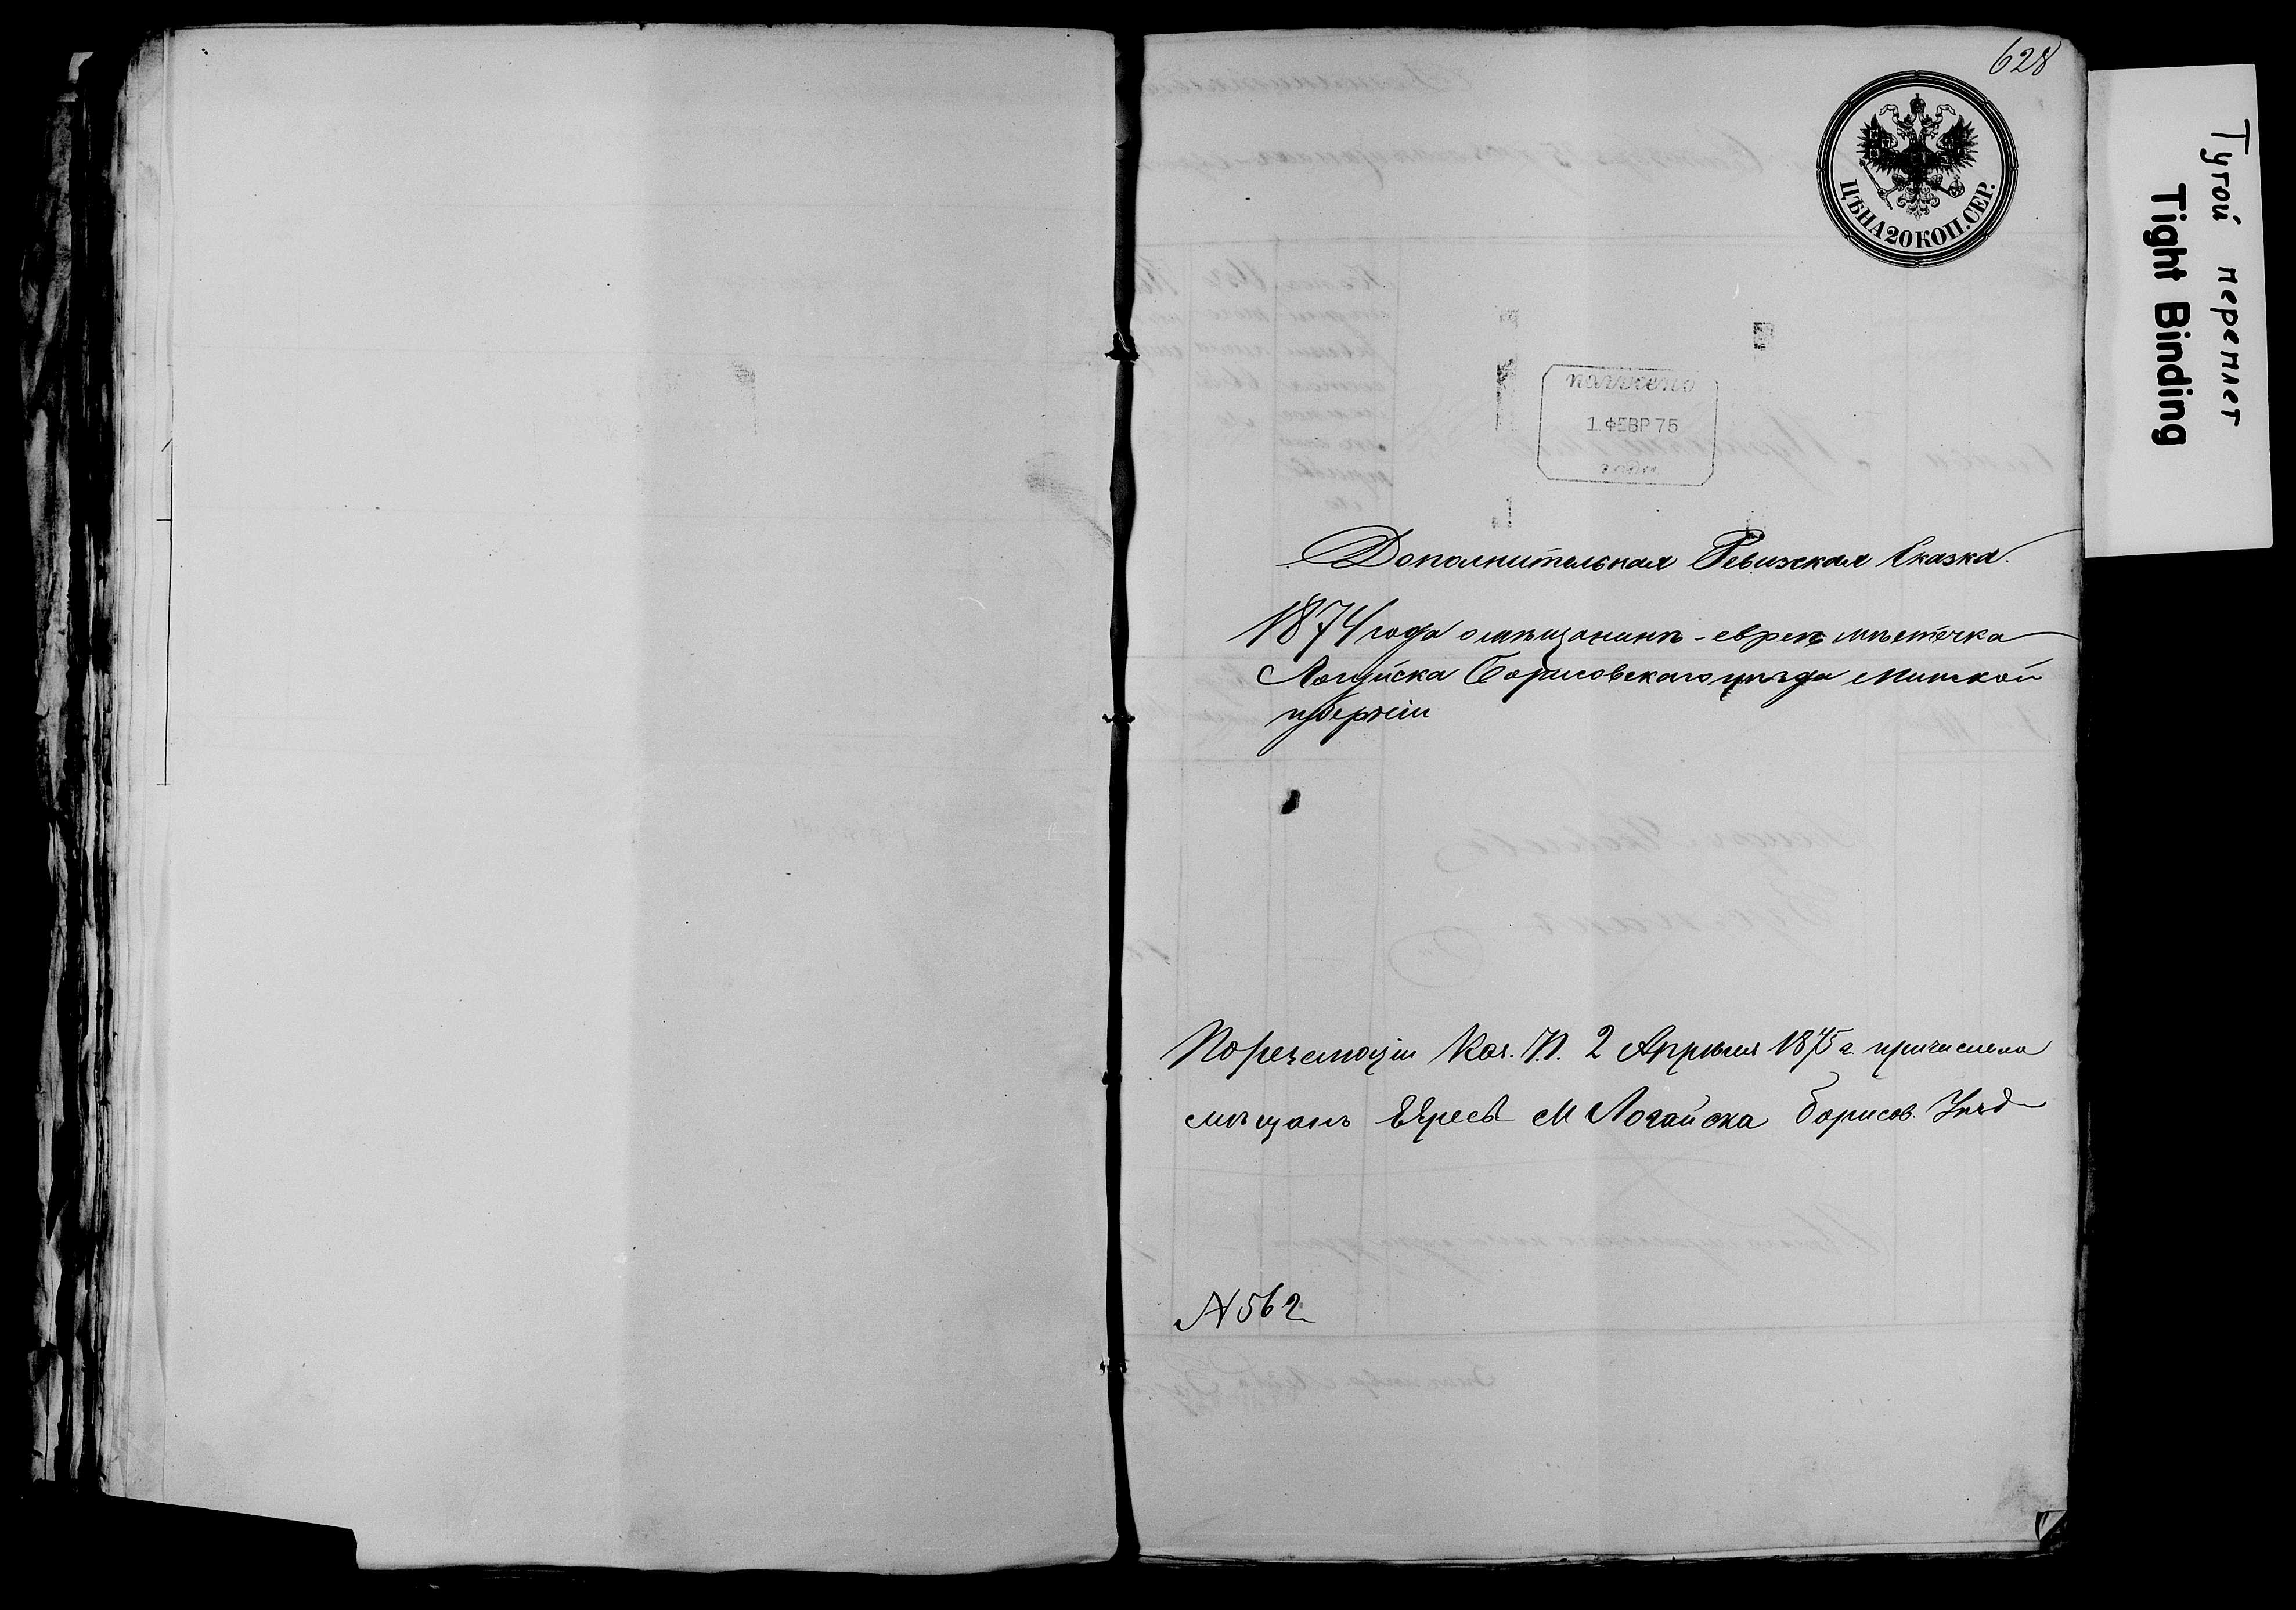 628
ЦѢНА 20 КОП. СЕР.
Тугой переплет
Tight Binding
получено
1 ФЕВР 75
года
Дополнительная Ревизская Сказка
1874 года о мѣщанинѣ - евреѣ мѣстечка
Логойска Борисовскаго уѣзда Минской
губерніи
По резолюціи Каз. П. 2 Апрѣля 1875 г. причислена
мѣщанъ Евреев М Логойска Борисов. Уѣзд
N 562